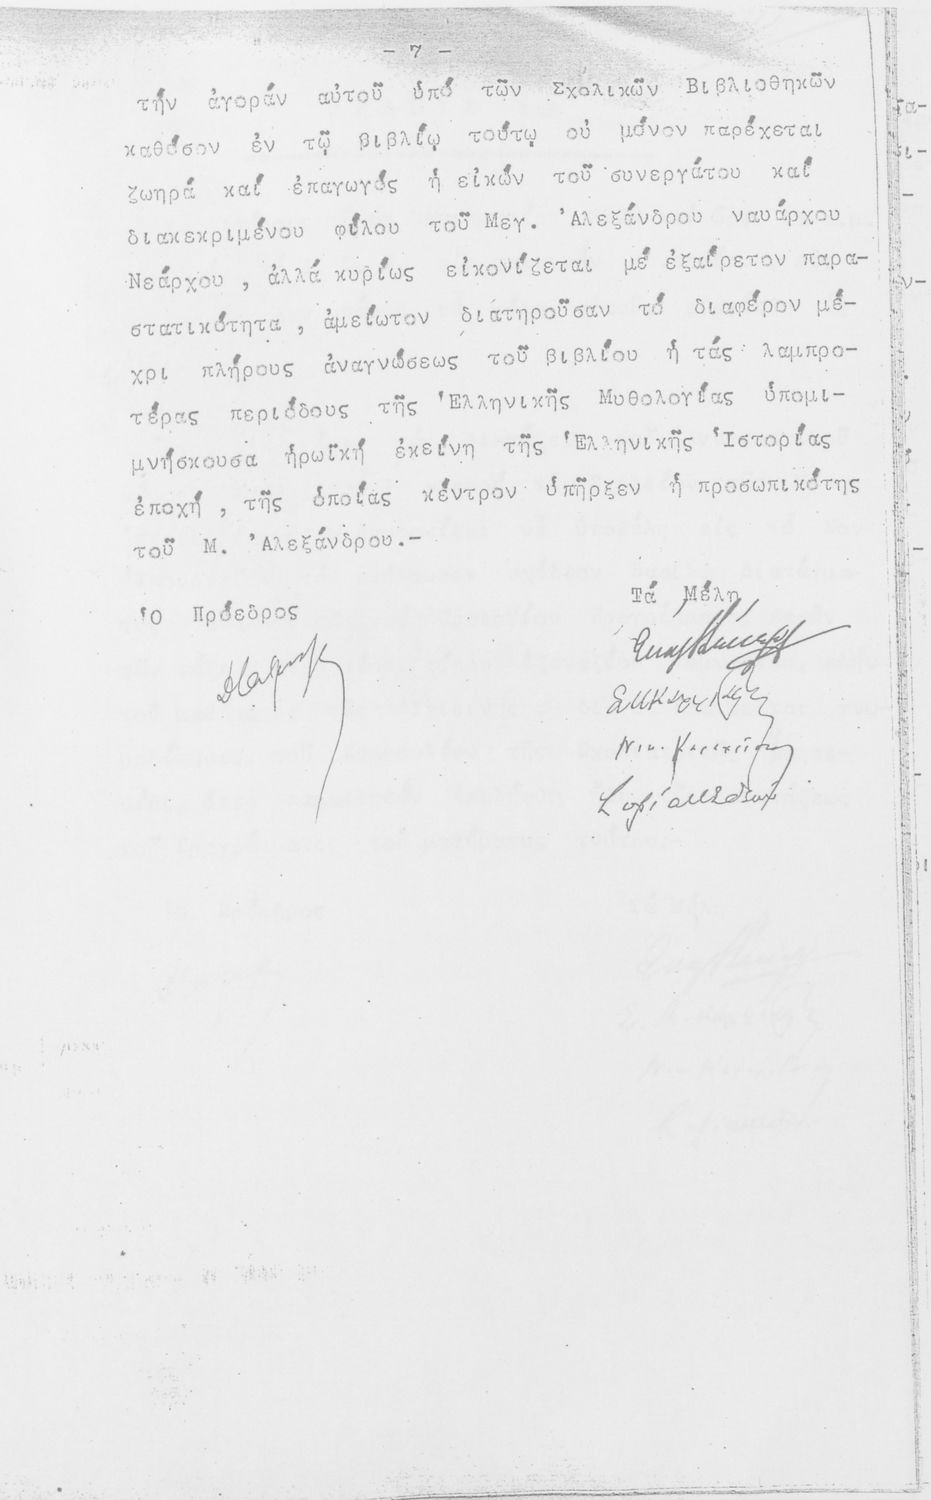 - 7 -
τήν ἀγοράν αὐτοῦ ὑπό τῶν Σχολικῶν Βιβλιοθηκῶν
καθόσον ἐν τῷ βιβλίῳ τούτῳ οὐ μόνον παρέχεται
ζωηρά καί ἐπαγωγός ἡ εἰκών τοῦ συνεργάτου καί
διακεκριμένου φίλου τοῦ Μεγ. Ἀλεξάνδρου ναυάρχου
Νεάρχου , ἀλλά κυρίως εἰκονίζεται μέ ἐξαίρετον παρα-
στατικότητα , ἀμείωτον διατηροῦσαν τό διαφέρον μέ-
χρι πλήρους ἀναγνώσεως τοῦ βιβλίου ἡ τάς λαμπρο-
τέρας περιόδους τῆς Ἑλληνικῆς Μυθολογίας ὑπομι-
μνήσκουσα ἡρωϊκή ἐκείνη τῆς Ἑλληνικῆς Ἱστορίας
ἐποχή , τῆς ὁποίας κέντρον ὑπῆρξεν ἡ προσωπικότης
τοῦ Μ. Ἀλεξάνδρου.-
Ὁ Πρόεδρος
Τά Μέλη